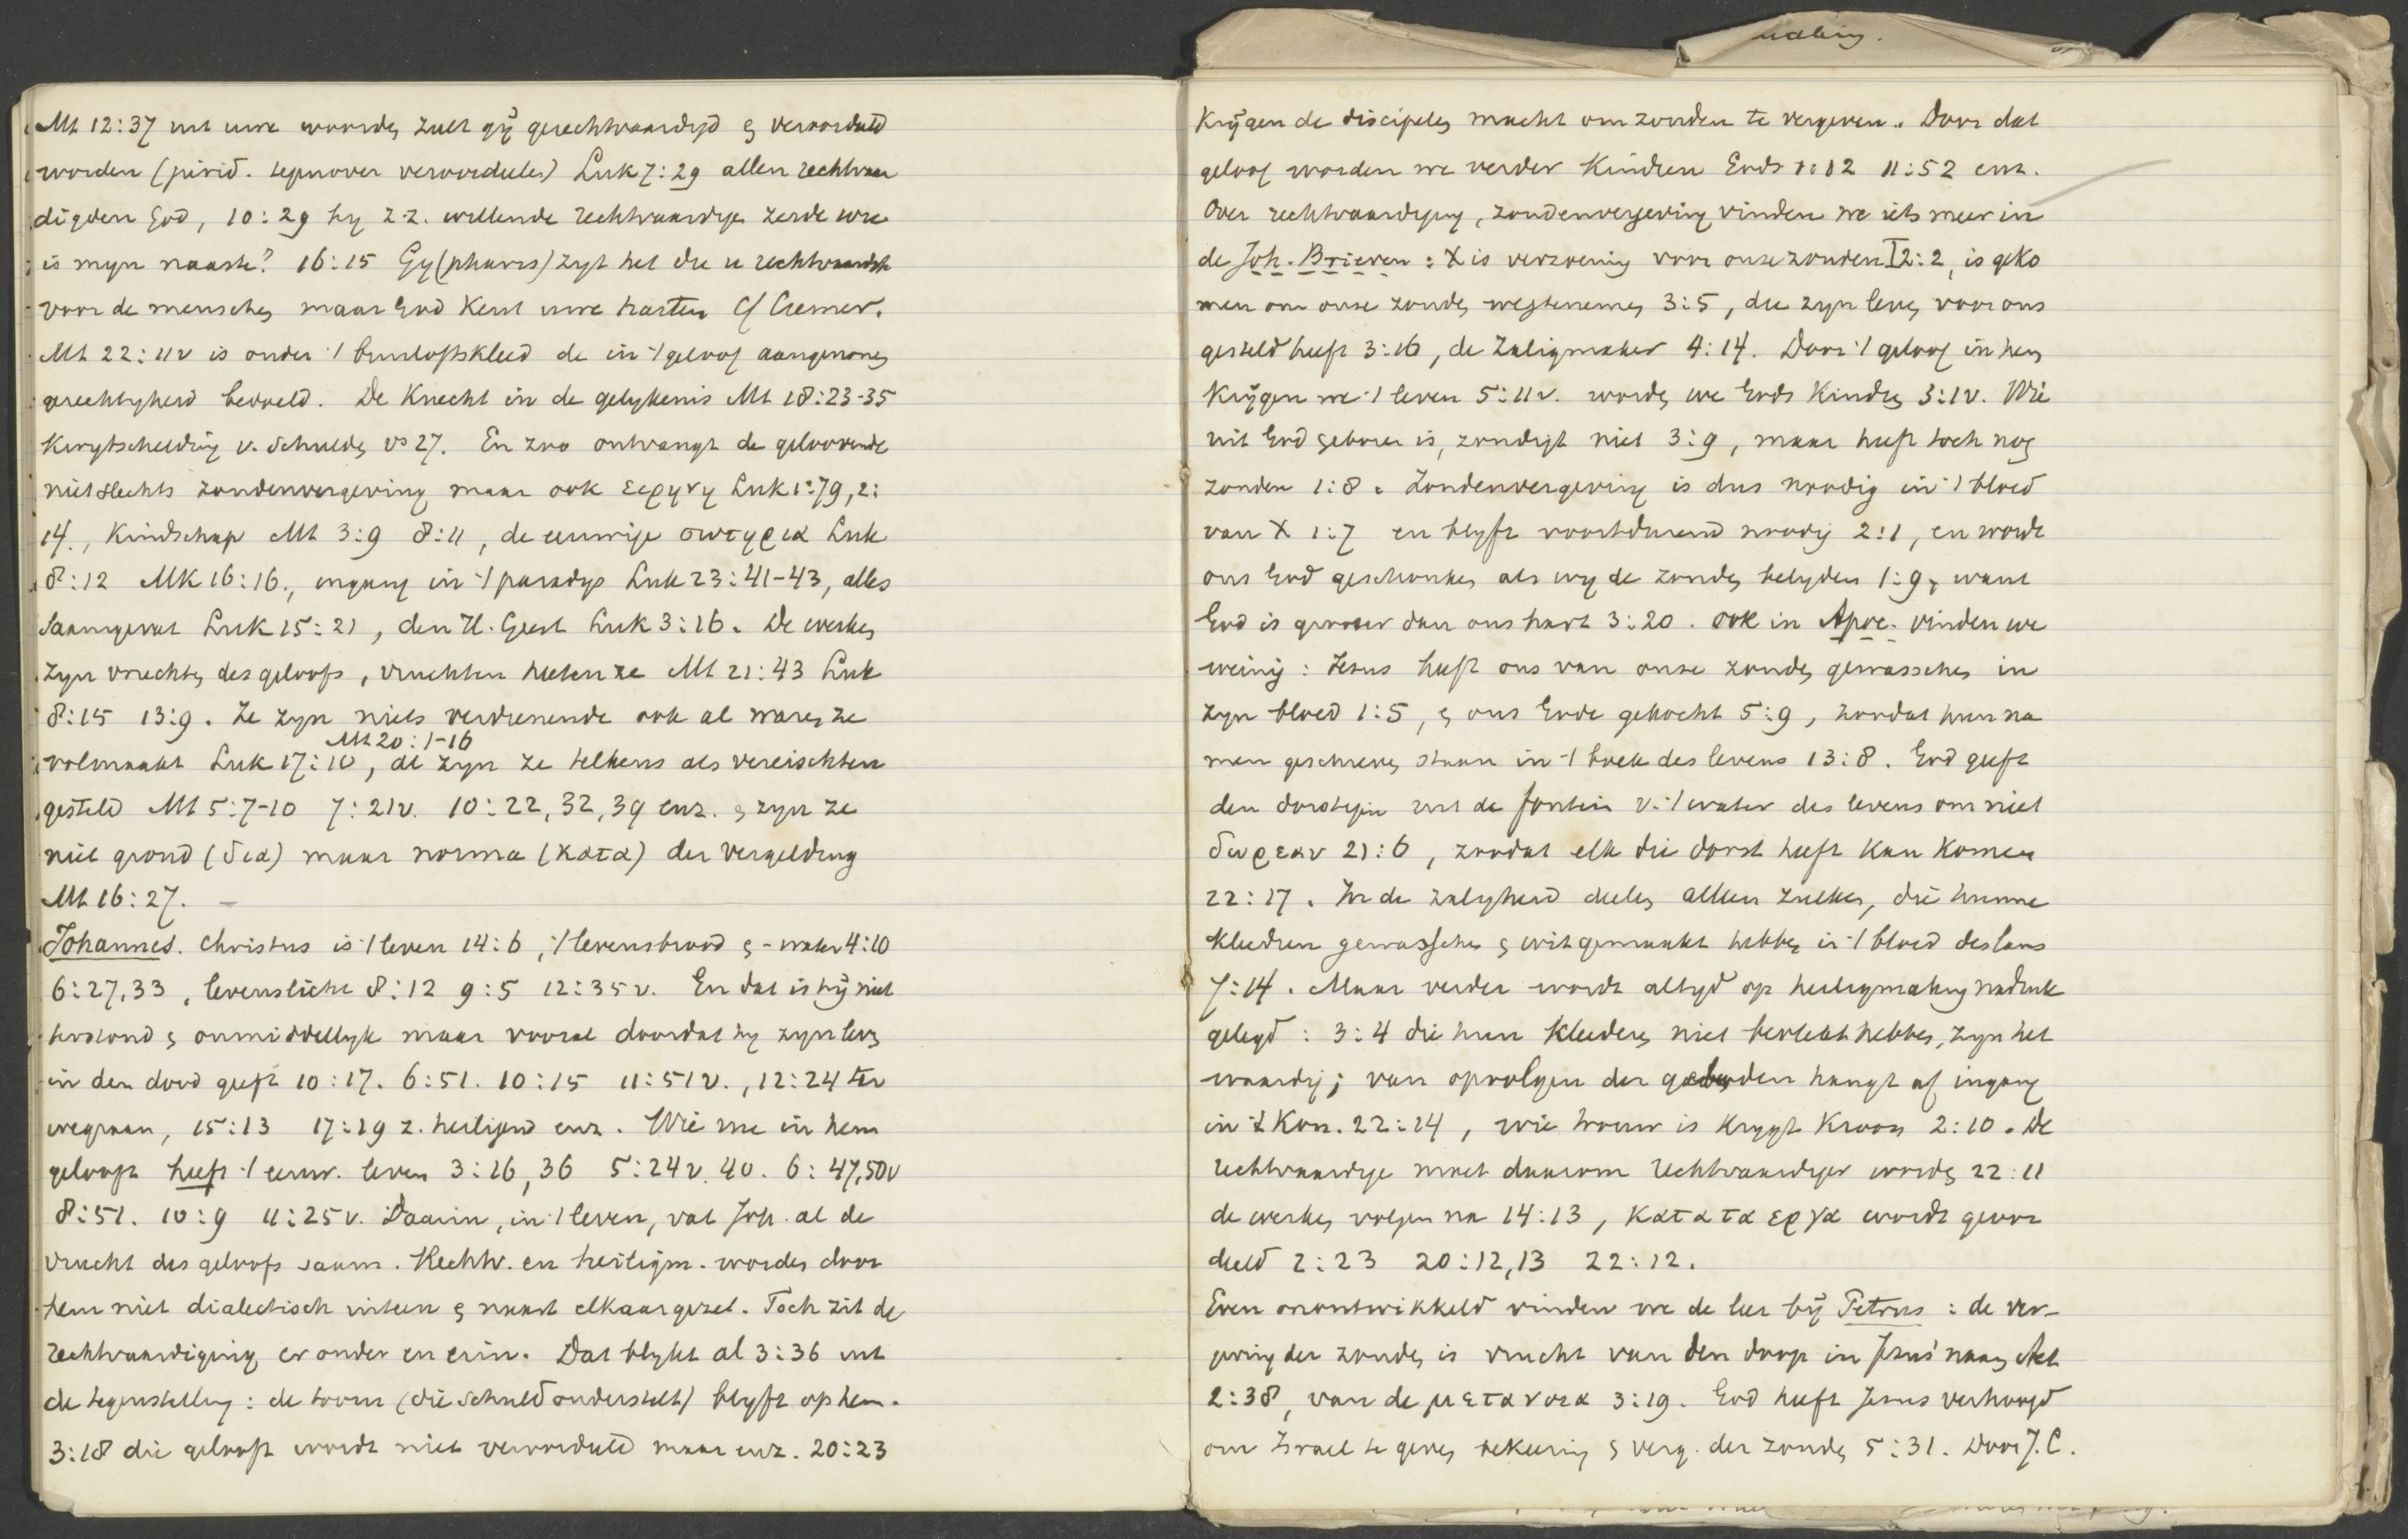 Mt 12:37 uit uwe woorden zult gij gerechtvaardigd en veroordeeld
worden (jurid. tegenover veroordeelen) Luk 7:29 allen rechtvaar
digden God, 10:29 hy z.z. willende rechtvaardigen zeide wie
is myn naaste? 16:15 Gy (phariz) zyt het die u rechtvaardigt
voor de menschen maar God kent uwe harten cf Cremer.
Mt 22:11v is onder 't bruiloftskleed de in 't geloof aangenomen
gerechtigheid bedoeld. De Knecht in de gelykenis Mt 18:23-35
kreeg kwytschelding v. schulden vs 27. En zoo ontvangt de geloovende
niet slechts zondenvergeving maar ook εερηνη Luk 1:79, 2:
14., Kindschap Mt 3:9 8:11, de eeuwige σωτηρια Luk
8:12 MK 16:16., ingang in 't paradys Luk 23:41-43, alles
saamgevat Luk 15:21, den H. Geest Luk 3:16. De werken
zyn vruchten des geloofs, vruchten heeten ze Mt 21:43 Luk
8:15 13:9. Ze zyn niets verdienende ook al waren ze
Mt 20:1-16
volmaakt Luk 17:10, al zyn ze telkens als vereischten
gesteld Mt 5:7-10 7:21v. 10:22,32,39 enz. en zyn ze
niet grond (δια) maar norma (κατα) der vergelding
Mt 16:27. —
Johannes. Christus is 't leven 14:6, 't levensbrood en -water 4:10
6:27,33, levenslicht 8:12 9:5 12:35v. En dat is hij niet
terstond en onmiddellyk maar vooral doordat hy zyn leven
in den dood geeft 10:17. 6:51. 10:15 11:51v., 12:24 ter
wegnaan, 15:13 17:19 z. heiligend enz. Wie nu in hem
gelooft heeft 't eeuw. leven 3:16,36 5:24v. 40. 6:47,50v
8:51. 10:9 11:25v. Daarin, in 't leven, vat Joh. al de
vrucht des geloofs saam. Rechtv. en heiligm. worden door
hem niet dialectisch uiteen en naast elkaar gezet. Toch zit de
rechtvaardiging er onder en erin. Dat blykt al 3:36 uit
de tegenstelling: de toorn (die schuld onderstelt) blyft op hem.
3:18 die gelooft wordt niet veroordeeld maar enz. 20:23
Krijgen de discipelen macht om zonden te vergeven. Door dat
geloof worden we verder kindren Gods 1:12 11:52 enz.
Over rechtvaardiging, zondenvergeving vinden we iets meer in
de Joh. Brieven: X is verzoening voor onze zonden I 2:2, is geko
men om onze zonden wegtenemen 3:5, die zyn leven voor ons
gesteld heeft 3:16, de Zaligmaker 4:14. Door 't geloof in hem
krijgen we 't leven 5:11v. worden we Gods kindren 3:1v. Wie
uit God geboren is, zondigt niet 3:9, maar heeft toch nog
zonden 1:8. Zondenvergeving is dus noodig in 't bloed
van X 1:7 en blyft voortdurend noodig 2:1, en wordt
ons God geschonken als wy de zonden belyden 1:9, want
God is grooter dan ons hart 3:20. Ook in Apoc. vinden we
weinig: Jezus heeft ons van onze zonden gewasschen in
zyn bloed 1:5, en ons Gode gekocht 5:9, zoodat hun na
men geschreven staan in 't boek des levens 13:8. God geeft
den dorstigen uit de fontein v. 't water des levens om niet
δωρεαν 21:6, zoodat elk die dorst heeft kan komen
22:17. In de zaligheid deelen alleen zulken, die hunne
kleedren gewasschen en wit gemaakt hebben in 't bloed des lams
7:14. Maar verder wordt altyd op heiligmaking nadruk
gelegd: 3:4 die hun kleederen niet bevlekt hebben, zyn het
waardig; van opvolgen der geboden hangt af ingang
in 't Kon. 22:14, wie trouw is krygt kroon 2:10. De
rechtvaardige moet daarom rechtvaardiger worden 22:11
de werken volgen na 14:13, κατα τα εργα wordt geoor
deeld 2:23 20:12,13 22:12.
Even onontwikkeld vinden we de leer bij Petrus: de ver-
geving der zonden is vrucht van den doop in Jezus' naam Act
2:38, van de μετανοια 3:19. God heeft Jezus verhoogd
om Israel te geven bekeering en verg. der zonden 5:31. Door J.C.